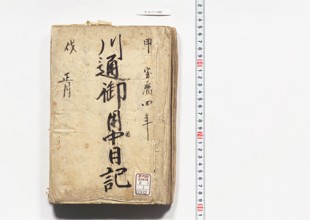 甲 宝暦四年
川通御用中日記
戌 正月